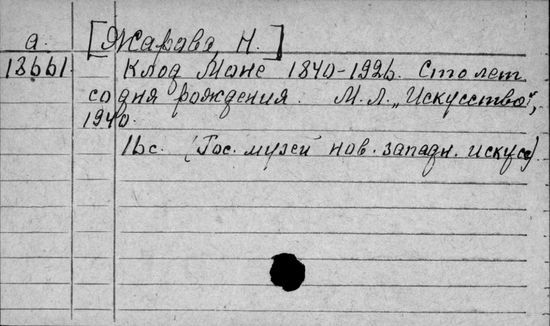 а. [Жарова, Н.]
13661 Клод Моне 1840-1926. Сто лет
со дня рождения. М.Л. „Искусство",
1940.
16с. (Гос. музей нов. западн. искусс)